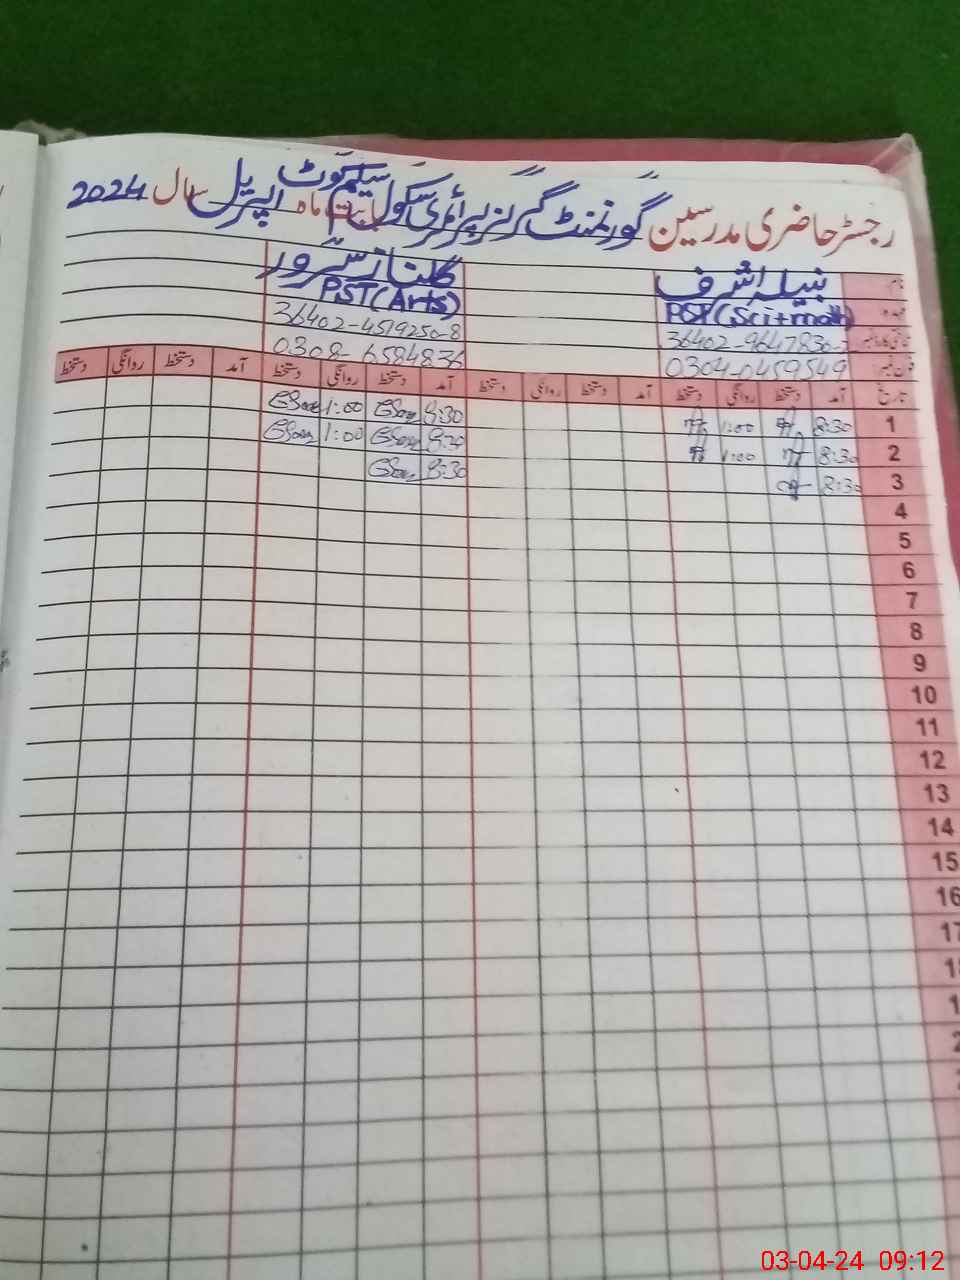 رجسٹر حاضری مدرسین گورنمنٹ گرلز پرائمری سکول سلیم کوٹ بابت ماہ اپریل سال 2024
نام نبیلہ اشرف گلناز سرور
عہدہ PST (Sci+math) PST (Arts)
شناختی کارڈ نمبر 36402-9647836- 36402-4519250-8
فون نمبر 0304-0459549 0308-6584836
تاریخ آمد دستخط روانگی دستخط آمد دستخط روانگی دستخط آمد دستخط روانگی دستخط آمد دستخط روانگی دستخط
1 8:30 1:00 8:30 1:00
2 8:30 1:00 8:30 1:00
3 8:30 8:30
4
5
6
7
8
9
10
11
12
13
14
15
16
17
03-04-24 09:12